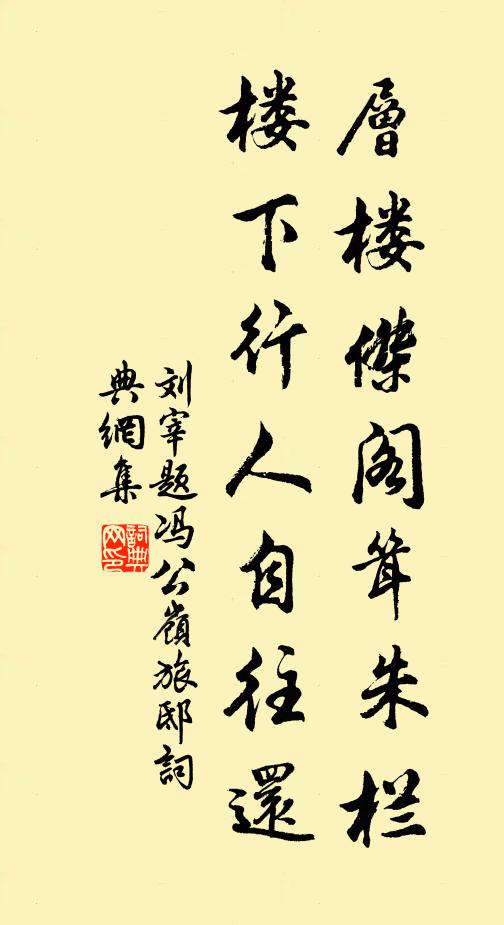 層楼傑阁耸朱栏
楼下行人自往還
刘宰题冯公嶺旅邸詞
典網集
詞典网印